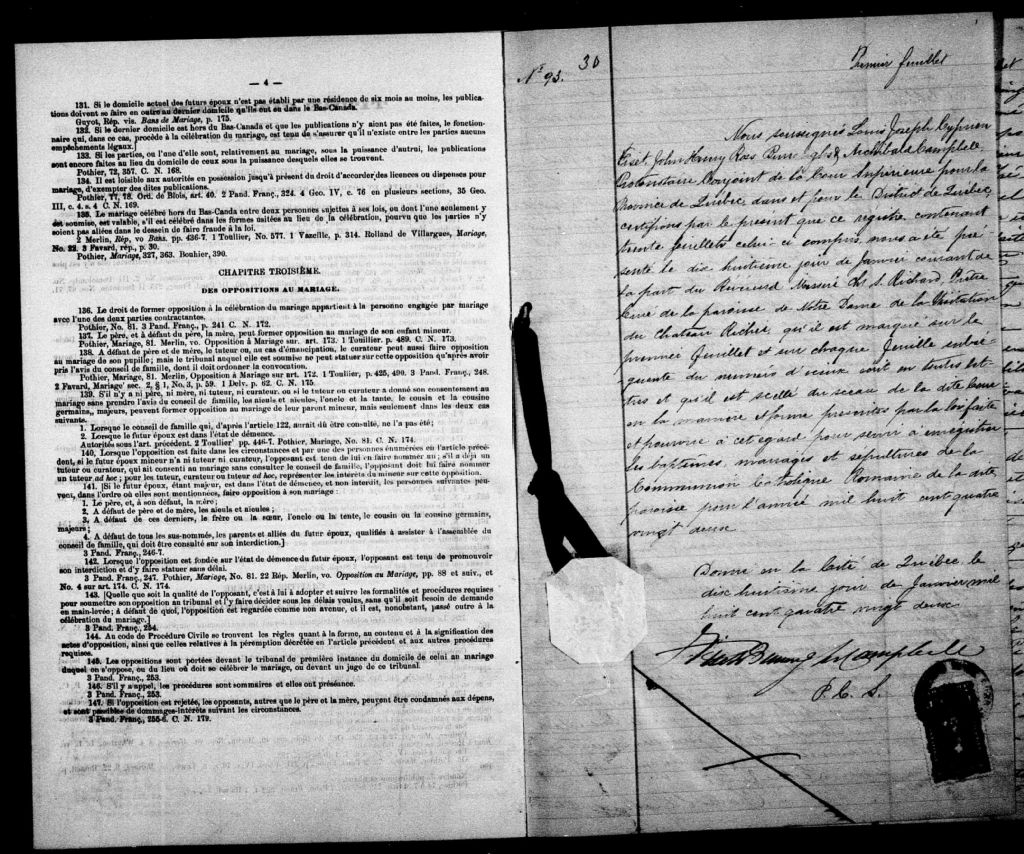 — 4 —
131. Si le domicile actuel des futurs époux n'est pas établi par une résidence de six mois au moins, les publica-
tions doivent se faire en outre au dernier domicile qu'ils ont eu dans le Bas-Canada.
Guyot, Rép. vis. Bans de Mariage, p. 175.
132. Si le dernier domicile est hors du Bas-Canada et que les publications n'y aient pas été faites, le fonction-
naire qui, dans ce cas, procède à la célébration du mariage, est tenu de s'assurer qu'il n'existe entre les parties aucuns
empêchements légaux.]
133. Si les parties, ou l'une d'elle sont, relativement au mariage, sous la puissance d'autrui, les publications
sont encore faites au lieu du domicile de ceux sous la puissance desquels elles se trouvent.
Pothier, 72, 357. C. N. 168.
134. Il est loisible aux autorités en possession jusqu'à présent du droit d'accorder des licences ou dispenses pour
mariage, d'exempter des dites publications.
Pothier, 77, 78. Ord. de Blois, art. 40. 2 Pand. Franç., 324. 4 Geo. IV, c. 76 en plusieurs sections, 35 Geo.
III, c. 4. s. 4 C. N. 169.
135. Le mariage célébré hors du Bas-Canda entre deux personnes sujettes à ses lois, ou dont l'une seulement y
est soumise, est valable, s'il est célébré dans les formes usitées au lieu de la célébration, pourvu que les parties n'y
soient pas allées dans le dessein de faire fraude à la loi.
2 Merlin, Rép, vo Bans, pp. 436-7. 1 Toullier, No. 577. 1 Vazeille, p. 314. Rolland de Villargues, Mariage,
No. 22. 3 Favard, rép., p. 30.
Pothier, Mariage, 327, 363. Bouhier, 390.
CHAPITRE TROISIÈME.
DES OPPOSITIONS AU MARIAGE.
136. Le droit de former opposition à la célébration du mariage appartient à la personne engagée par mariage
avec l'une des deux parties contractantes.
Pothier, No. 81. 3 Pand. Franç., p. 241 C. N. 172.
137. Le père, et à défaut du père, la mère, peut former opposition au mariage de son enfant mineur.
Pothier, Mariage, 81. Merlin, vo. Opposition à Mariage sur. art. 173. 1 Touillier. p. 489. C. N. 173.
138. A défaut de père et de mère, le tuteur ou, au cas d'émancipation, le curateur peut aussi faire opposition
au mariage de son pupille; mais le tribunal auquel elle est soumise ne peut statuer sur cette opposition qu'après avoir
pris l'avis du conseil de famille, dont il doit ordonner la convocation.
Pothier, Mariage, 81. Merlin, Opposition à Mariage sur art. 172. 1 Toullier, p. 425, 490. 3 Pand. Franç., 248.
2 Favard, Mariage' sec. 2, § 1, No. 3, p. 59. 1 Delv. p. 62. C. N. 175.
139. S'il n'y a ni père, ni mère, ni tuteur, ni curateur, ou si le tuteur ou curateur a donné son consentement au
mariage sans prendre l'avis du conseil de famille, les aïeuls et aïeules, l'oncle et la tante, le cousin et la cousine
germains, majeurs, peuvent former opposition au mariage de leur parent mineur, mais seulement dans les deux cas
suivants.
1. Lorsque le conseil de famille qui, d'après l'article 122, aurait dû être consulté, ne l'a pas été;
2. Lorsque le futur époux est dans l'état de démence.
Autorités sous l'art. précédent. 2 Toullier' pp. 446-7. Pothier, Mariage, No. 81. C. N. 174.
140. Lorsque opposition est faite dans les circonstances et par une des personnes énumérées en l'article précé-
dent, si le futur époux mineur n'a ni tuteur ni curateur, opposant est tenu de lui en faire nommer un; s'il a déjà un
tuteur ou curateur, qui ait consenti au mariage sans consulter le conseil de famille, l'opposant doit lui faire nommer
un tuteur ad hoc; pour les tuteur, curateur ou tuteur ad hoc, représenter les intérêts du mineur sur cette opposition.
141. [Si le futur époux, étant majeur, est dans l'état de démence, et non interdit, les personnes suivantes peu-
vent, dans l'ordre où elles sont mentionnées, faire opposition à son mariage:
1. Le père, et, à son défaut, la mère;
2. A défaut de père et de mère, les aieuls et aieules;
3. A défaut de ces derniers, le frère ou la sœur, l'oncle ou la tente, le cousin ou la cousine germains,
majeurs;
4. A défaut de tous les sus-nommés, les parents et alliés du futur époux, qualifiés à assister à l'assemblée du
conseil de famille, qui doit être consulté sur son interdiction.]
3 Pand. Franç., 246-7.
142. Lorsque l'opposition est fondée sur l'état de démence du futur époux, l'opposant est tenu de promouvoir
son interdiction et d'y faire statuer sans délai.
3 Pand. Franç., 247. Pothier, Mariage, No. 81. 22 Rép. Merlin, vo. Opposition au Mariage, pp. 88 et suiv., et
No. 4 sur art. 174. C. N. 174.
143. [Quelle que soit la qualité de l'opposant, c'est à lui à adopter et suivre les formalités et procédures requises
pour soumettre son opposition au tribunal et l'y faire décider sous les délais voulus, sans qu'il soit besoin de demande
en main-levée; à défaut de quoi, l'opposition est regardée comme non avenue, et il est, nonobstant, passé outre à la
célébration du mariage.]
3 Pand. Franç., 254.
144. Au code de Procédure Civile se trouvent les règles quant à la forme, au contenu et à la signification des
actes d'opposition, ainsi que celles relatives à la péremption décrétée en l'article précédent et aux autres procédures
requises.
145. Les oppositions sont portées devant le tribunal de première instance du domicile de celui au mariage
duquel on s'oppose, ou du lieu où doit se célébrer le mariage, ou devant un juge de ce tribunal.
3 Pand. Franç., 253.
146. S'il y a appel, les procédures sont sommaires et elles ont préséance.
3 Pand. Franç., 253.
147. Si l'opposition est rejetée, les opposants, autres que le père et la mère, peuvent être condamnés aux dépens,
et sont passibles de dommages-intérêts suivant les circonstances.
3 Pand. Franç., 255-6. C. N. 179.
No 93. 30
Premier feuillet
Nous soussignés Louis Joseph Cyprien
Fiset, John Henry Ross Burroughs & Archibald Campbell
Protonotaire Conjoint de la Cour Supérieure pour la
Province de Québec dans et pour le District de Québec
certifions par le present que ce registre contenant
trente feuillets celui-ci compris, nous a été pré
senté le dix huitième jour de Janvier courant de
la part du Révérend Messire Chs. S. Richard Prêtre
Curé de la paroisse de Notre Dame de la Visitation
du Chateau Richer, qu'il est marqué sur le
premier feuillet et sur chaque feuille subsé
quente du numéro d'iceux écrit en toutes let-
tres et qu'il est scellé du sceau de la dite Cour
en la manière et forme prescrites par la loi faite
et pourvue à cet égard pour servir à enregistrer
les baptêmes, mariages et sépultures de la
Communion Catholique Romaine de la dite
paroisse pour l'année mil huit cent quatre
vingt deux
Donné en la Cité de Québec le
dix huitième jour de Janvier mil
huit cent quatre vingt deux
Fiset Burroughs & Campbell
P. C. S.